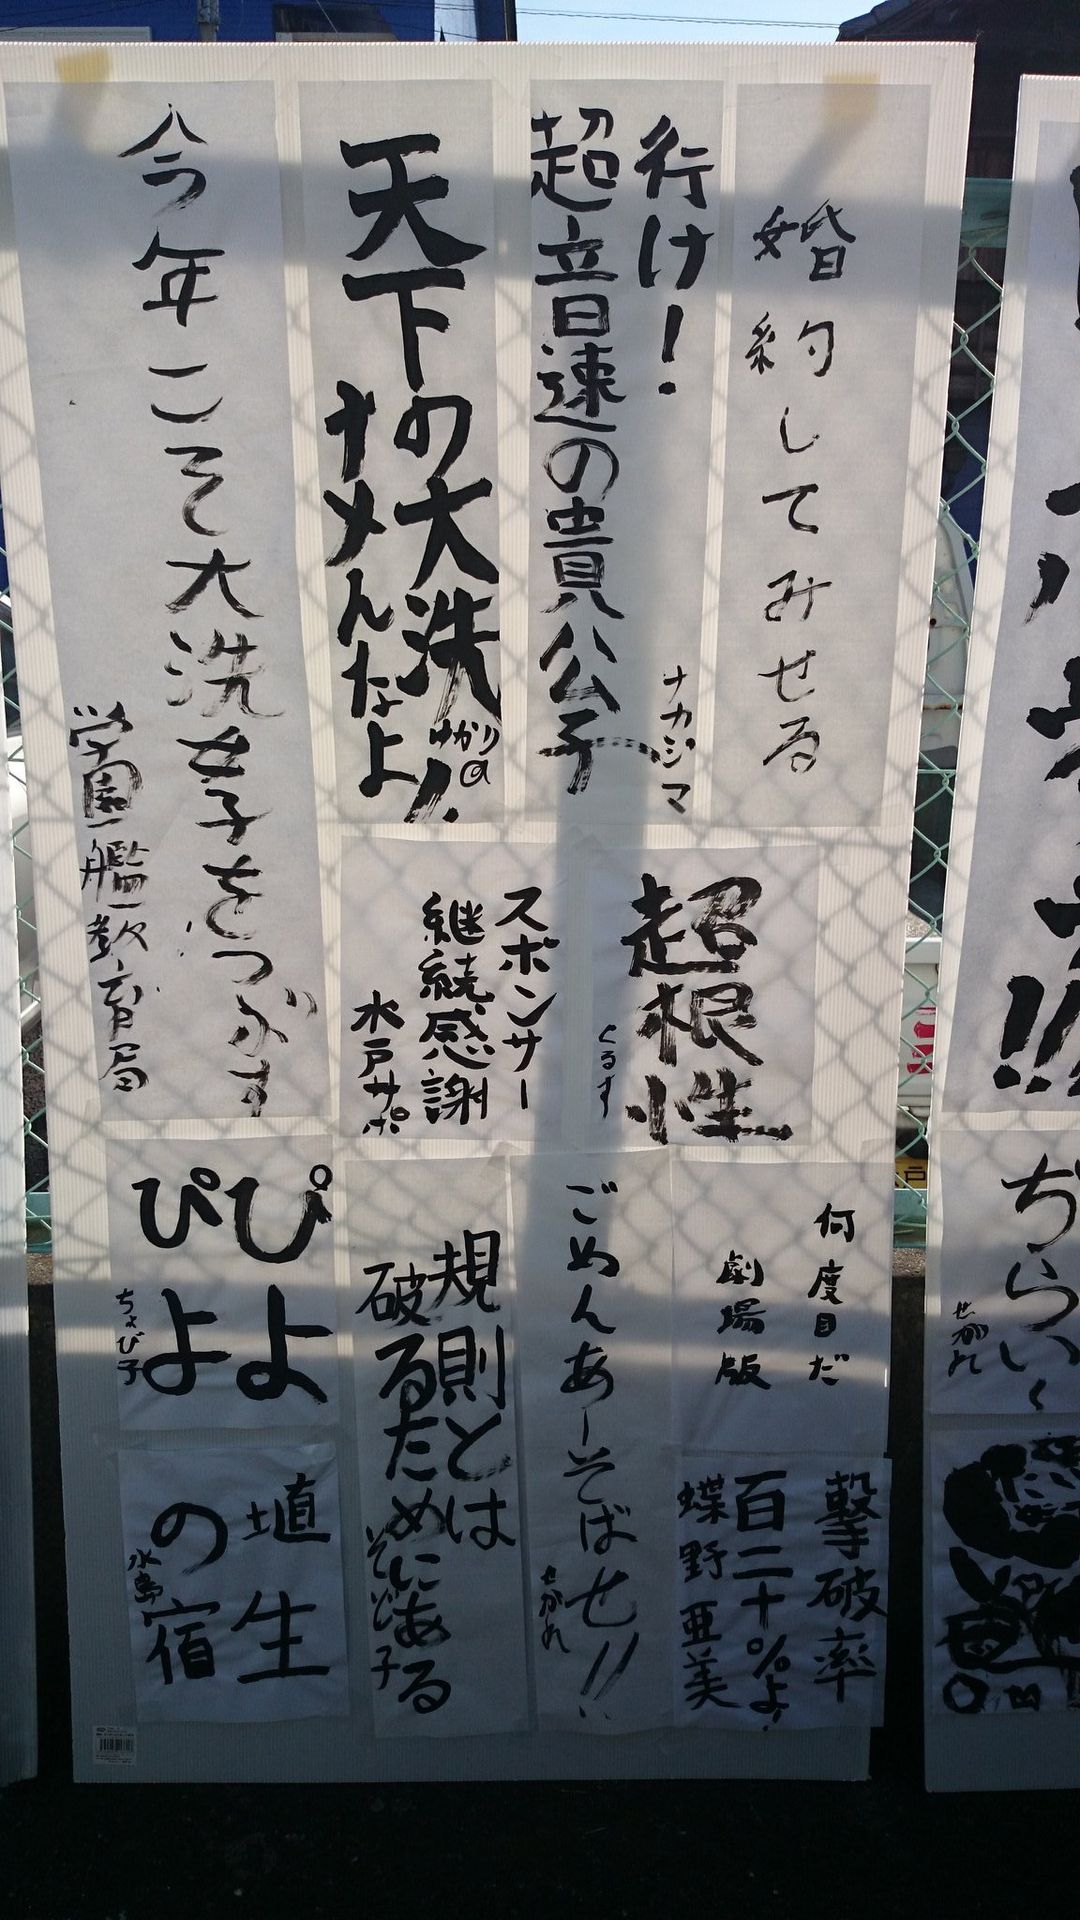 婚約してみせる
行け!
超音速の貴公子
ナカジマ
天下の大洗
ナメんなよ!
ゆかりの
今年こそ大洗女子をつぶす
学園艦教育局
超根性
くるす
スポンサー
継続感謝
水戸サポ
何度目だ
劇場版
撃破率
百二十%よ!
蝶野亜美
ごめんあーそばせ!!
せがれ
規則とは
破るためにある
そど子
ぴよ
ぴよ
ちょび子
埴生
の宿
水島
!!
ぢらい
せがれ